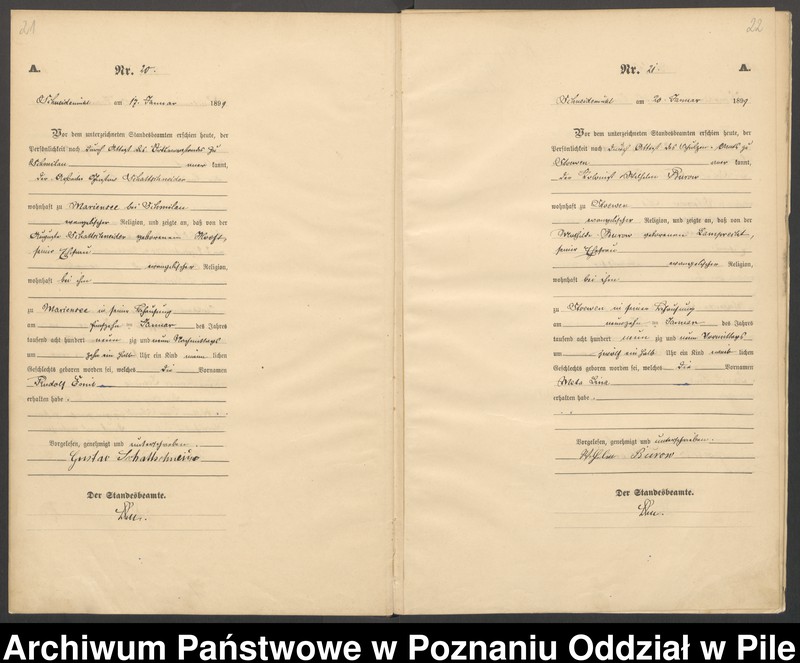 21
A.
Nr. 20.
Schneidemühl am 17. Januar 1899
Vor dem unterzeichneten Standesbeamten erschien heute, der
Persönlichkeit nach durch Attest des zu
Schmilau kannt,
der Gustav Schattschneider
wohnhaft zu Mariensee bei Schmilau
evangelischer Religion, und zeigte an, daß von der
Auguste Schattschneider geborenen
seiner Ehefrau
evangelischer Religion,
wohnhaft bei ihm
zu Mariensee in seiner Behausung
am fünfzehn ten Januar des Jahres
tausend acht hundert neun zig und neun Vormittags
um zehn ein halb Uhr ein Kind männ lichen
Geschlechts geboren worden sei, welches die Vornamen
Rudolf
erhalten habe.
Vorgelesen, genehmigt und unterschrieben.
Gustav Schattschneider
Der Standesbeamte.
22
Nr. 21.
A.
Schneidemühl am 20. Januar 1899
Vor dem unterzeichneten Standesbeamten erschien heute, der
Persönlichkeit nach durch Attest des Schulzen-Amts zu
Stoewen kannt,
der Kolonist Wilhelm Burow
wohnhaft zu Stoewen
evangelischer Religion, und zeigte an, daß von der
Mathilde Burow geborenen Lamprecht,
seiner Ehefrau
evangelischer Religion,
wohnhaft bei ihm
zu Stoewen in seiner Behausung
am neunzehn ten Januar des Jahres
tausend acht hundert neun zig und neun Vormittags
um zwölf ein halb Uhr ein Kind weib lichen
Geschlechts geboren worden sei, welches die Vornamen
Meta
erhalten habe.
Vorgelesen, genehmigt und unterschrieben.
Burow
Der Standesbeamte.
Archiwum Państwowe w Poznaniu Oddział w Pile